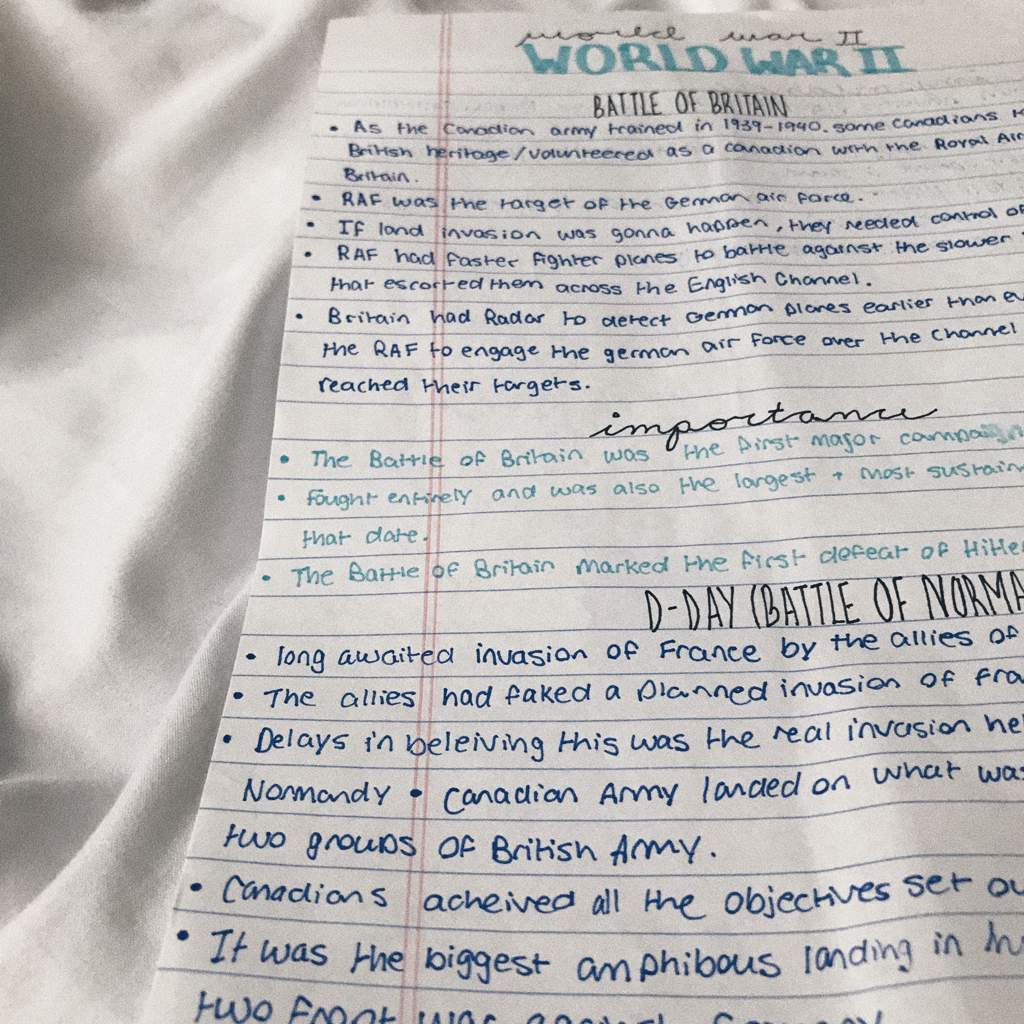 world war II
WORLD WAR II
BATTLE OF BRITAIN
• As the Canadian army trained in 1939-1940. some Canadians
British heritage/volunteered as a canadian with the Royal Air
Britain.
• RAF was the target of the German air force.
• If land invasion was gonna happen, they needed control of
• RAF had faster fighter planes to battle against the slower
that escorted them across the English Channel.
• Britain had Radar to detect German planes earlier than
the RAF to engage the german air force over the Channel
reached their targets.
importance
• The Battle of Britain was the first major campaign
• fought entirely and was also the largest + most sustain
that date.
• The Battle of Britain marked the first defeat of Hitler
D-DAY (BATTLE OF NORMA
• long awaited invasion of France by the allies of
• The allies had faked a planned invasion of fra
• Delays in beleiving this was the real invasion he
Normandy • Canadian Army landed on what was
two groups of British Army.
• Canadians acheived all the objectives set ou
• It was the biggest amphibous landing in
two front war against